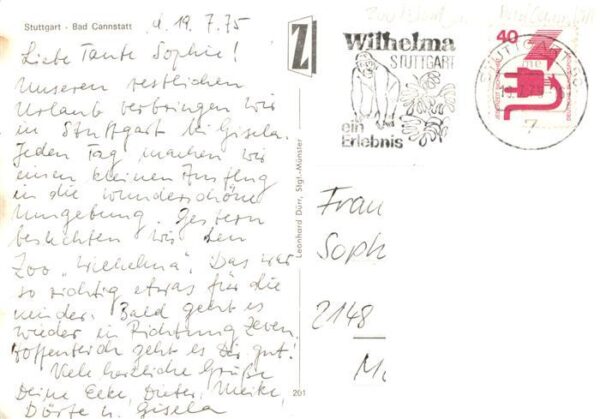 Stuttgart - Bad Cannstatt
d. 19.7.75
Liebe Tante Sophie!
Unseren restlichen
Urlaub verbringen wir
in Stuttgart bei Gisela.
Jeden Tag machen wir
einen kleinen Ausflug
in die wunderschöne
Umgebung. Gestern
besichten wir den
Zoo „Wilhelma". Das war
so richtig etwas für die
Kinder. Bald geht es
wieder in Richtung Zeven.
Hoffentlich geht es Dir gut!
Viele herzliche Grüße
Deine Elke, Dieter, Meike,
Dörte u. Gisela
Z
Leonhard Dürr, Stgt.-Münster
201
Wilhelma
STUTTGART
ein
Erlebnis
40
7
Frau
Soph
2148